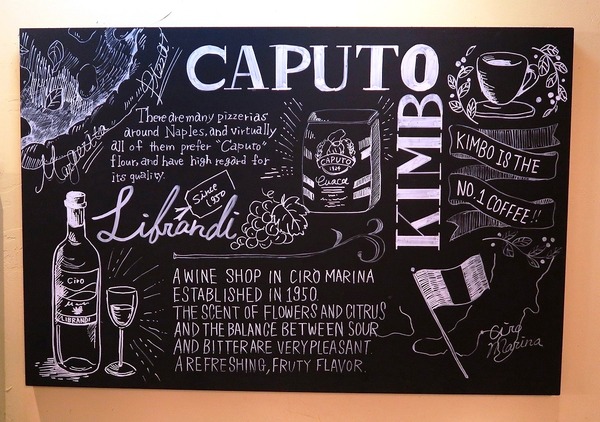 CAPUTO
KIMBO
Margarita
There are many pizzerias
around Naples, and virtually
all of them prefer "Caputo"
flour, and have high regard for
its quality.
CAPUTO
1924
KIMBO IS THE
NO.1 COFFEE!!
Librandi
Since
1950
Cirò
LIBRANDI
A WINE SHOP IN CIRÒ MARINA
ESTABLISHED IN 1950.
THE SCENT OF FLOWERS AND CITRUS
AND THE BALANCE BETWEEN SOUR
AND BITTER ARE VERY PLEASANT.
A REFRESHING, FRUTY FLAVOR.
Cirò
Marina